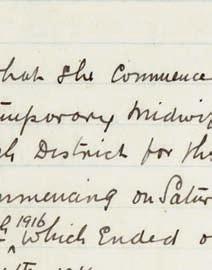 that she Commence
temporary Midwif
District for the
mmencing on Satur
1916
which Ended o